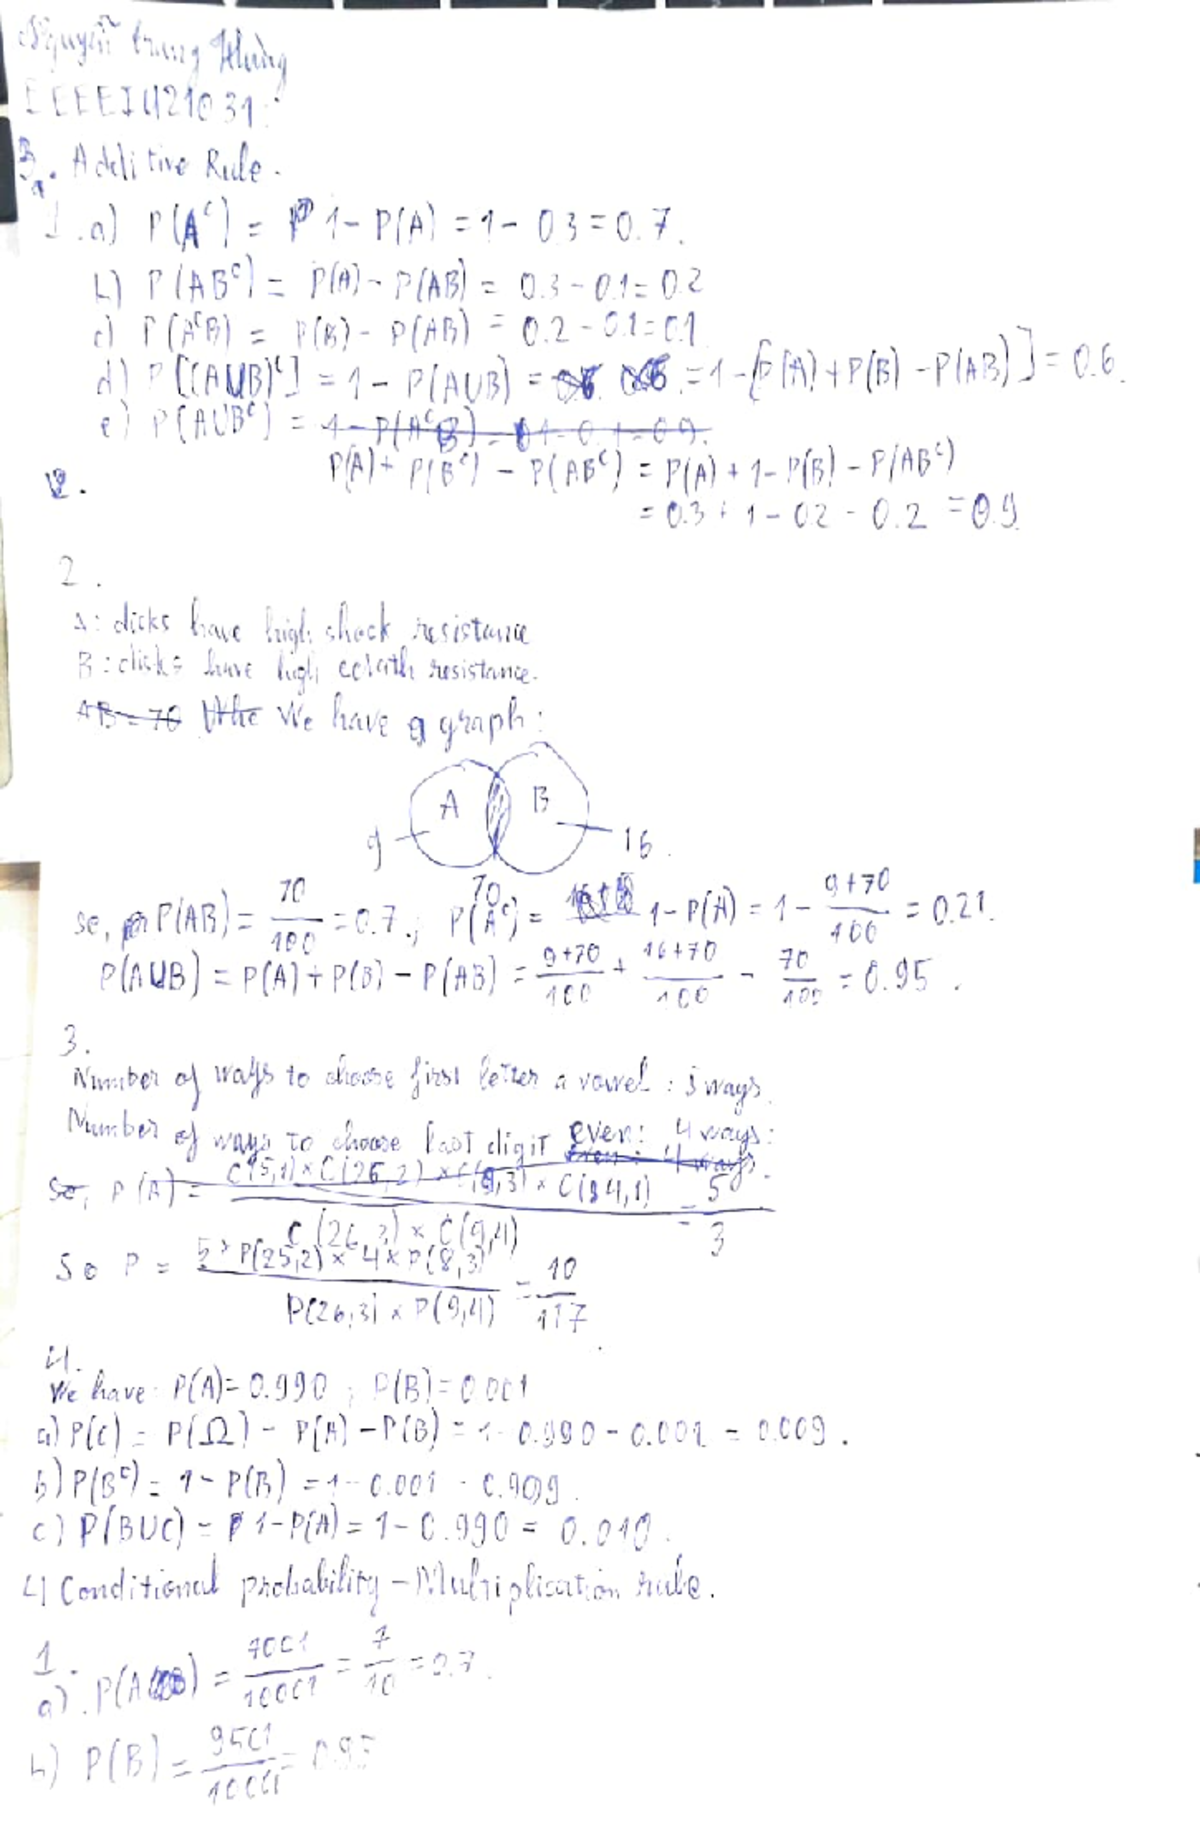 Nguyễn trung Hưng
EEEEIU21031:
3. Additive Rule.
1.a) P(A^c) = 1 - P(A) = 1 - 0.3 = 0.7.
b) P(AB^c) = P(A) - P(AB) = 0.3 - 0.1 = 0.2
c) P(A^cB) = P(B) - P(AB) = 0.2 - 0.1 = 0.1
d) P[(A∪B)^c] = 1 - P(A∪B) = = 1 - [P(A) + P(B) - P(AB)] = 0.6.
e) P(A∪B^c) = 1 - P(A^cB) = 1 - 0.1 = 0.9.
P(A) + P(B^c) - P(AB^c) = P(A) + 1 - P(B) - P(AB^c)
= 0.3 + 1 - 0.2 - 0.2 = 0.9
2.
2.
A: dicks have high shock resistance
B: disks have high resistance.
AB = 70 We have a graph:
A B
9 16.
70
so, P(AB) = 70/100 = 0.7.; P(A^c) = 1 - P(A) = 1 - (9+70)/100 = 0.21.
P(A∪B) = P(A) + P(B) - P(AB) = (9+70)/100 + (16+70)/100 - 70/100 = 0.95.
3.
Number of ways to choose first letter a vowel: 5 ways.
Number of ways to choose last digit even: 4 ways:
even: 4 ways.
So, P(A) = C(5,1) × C(26,2) × C(9,3) × C(4,1) / C(26,3) × C(9,4) = 5/3
So P = 5 × P(25,2) × 4 × P(8,3) / P(26,3) × P(9,4) = 10/117
4.
We have: P(A) = 0.990; P(B) = 0.001
a) P(C) = P(Ω) - P(A) - P(B) = 1 - 0.990 - 0.001 = 0.009.
b) P(B^c) = 1 - P(B) = 1 - 0.001 = 0.999.
c) P(B∪C) = 1 - P(A) = 1 - 0.990 = 0.010.
4) Conditional probability - Multiplication rule.
1.
a). P(A) = 7001/10001 = 7/10 = 0.7.
b) P(B) = 9501/10001 = 0.95